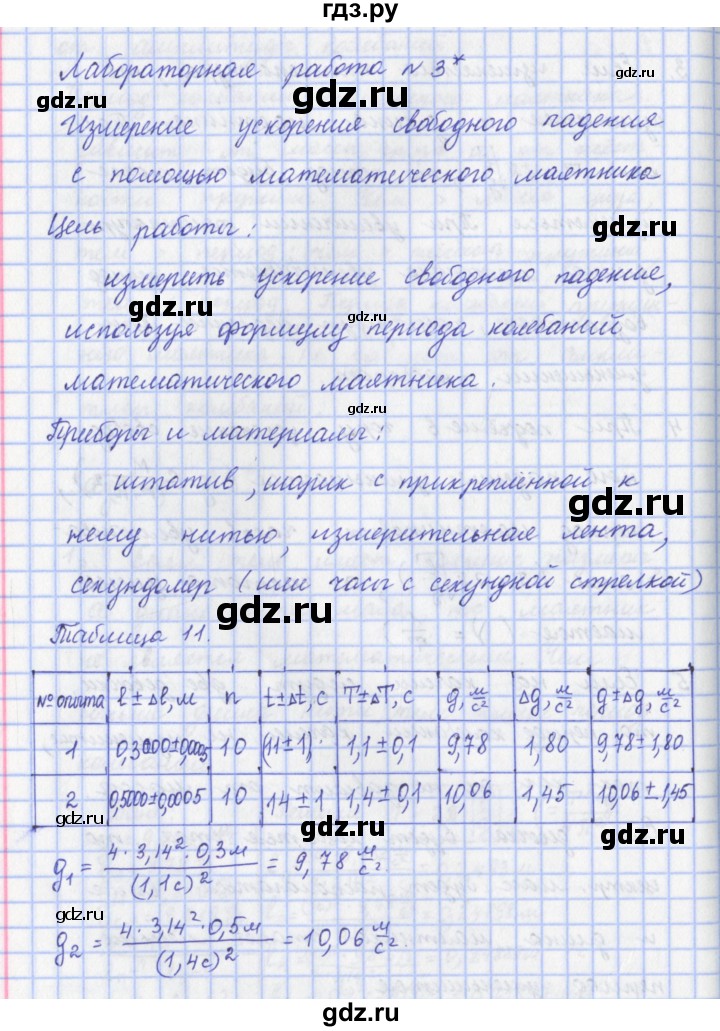 гдз.ру
Лабораторная работа № 3*
gdz.ru
gdz.ru
Измерение ускорения свободного падения
с помощью математического маятника
Цель работы:
gdz.ru
измерить ускорение свободного падения,
gdz.ru
gdz.ru
используя формулу периода колебаний
математического маятника.
gdz.ru
Приборы и материалы:
штатив, шарик с прикреплённой к
gdz.ru
нему нитью, измерительная лента,
секундомер (или часы с секундной стрелкой)
gdz.ru
Таблица 11.
№ опыта | l ± Δl, м | n | t ± Δt, с | T ± ΔT, с | g, м/с² | Δg, м/с² | g ± Δg, м/с²
1 | 0,3000 ± 0,0005 | 10 | (11 ± 1) | 1,1 ± 0,1 | 9,78 | 1,80 | 9,78 ± 1,80
2 | 0,5000 ± 0,0005 | 10 | 14 ± 1 | 1,4 ± 0,1 | 10,06 | 1,45 | 10,06 ± 1,45
gdz.ru
gdz.ru
g₁ = 4 · 3,14² · 0,3м / (1,1с)² = 9,78 м/с²
gdz.ru
g₂ = 4 · 3,14² · 0,5м / (1,4с)² = 10,06 м/с².
gdz.ru
gdz.ru